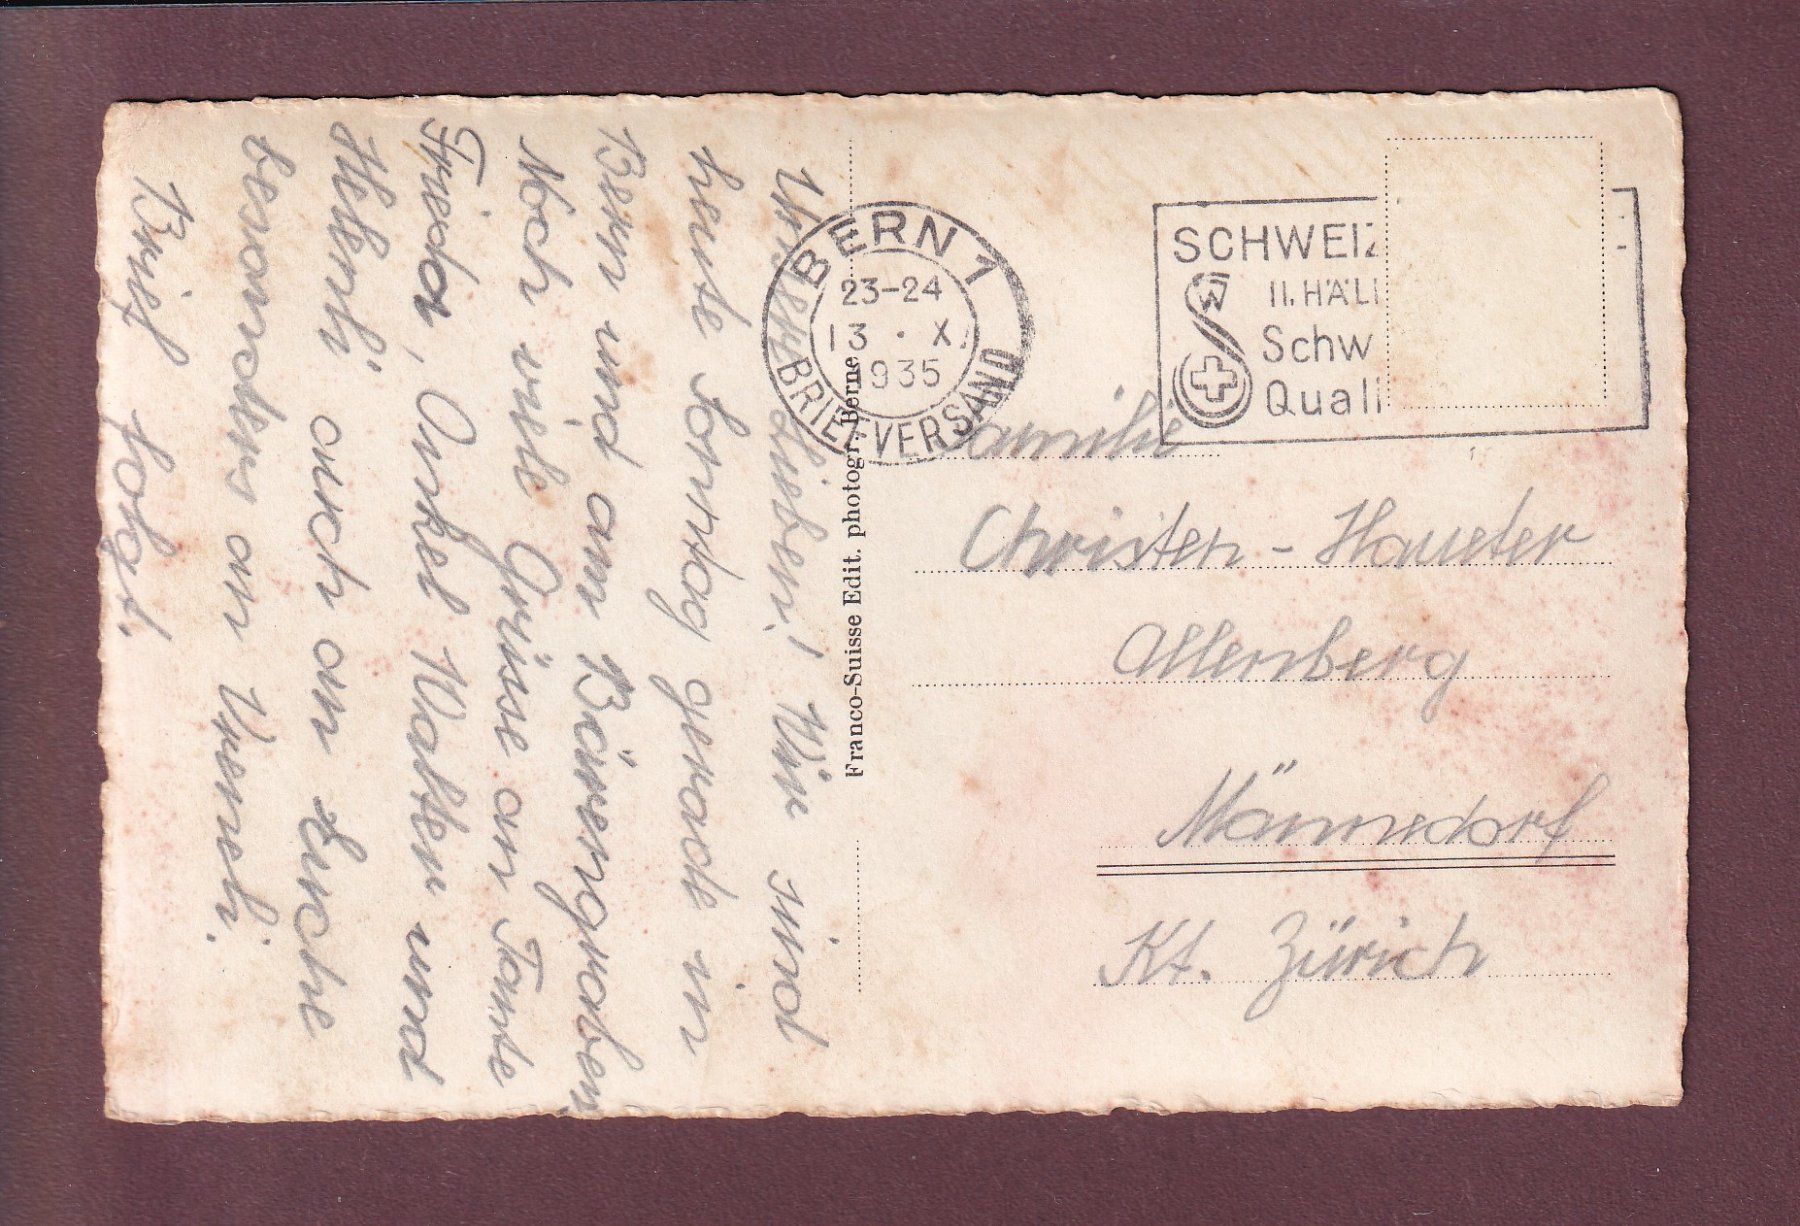 Lieben! Wir sind
heute Sonntag gerade in
Bern und am Bärengraben
Noch viele Grüsse an Tante
Frieda, Onkel Walter und
auch an Euche
besonders an Vreneli.
Brief folgt.
Franco-Suisse Edit. photogr. Berne
BERN 1
23-24
13 · X
1935
BRIEFVERSAND
SCHWEIZ
II. HÄL
Schw
Quali
Familie
Christen - Haueter
Allenberg
Männedorf
Kt. Zürich